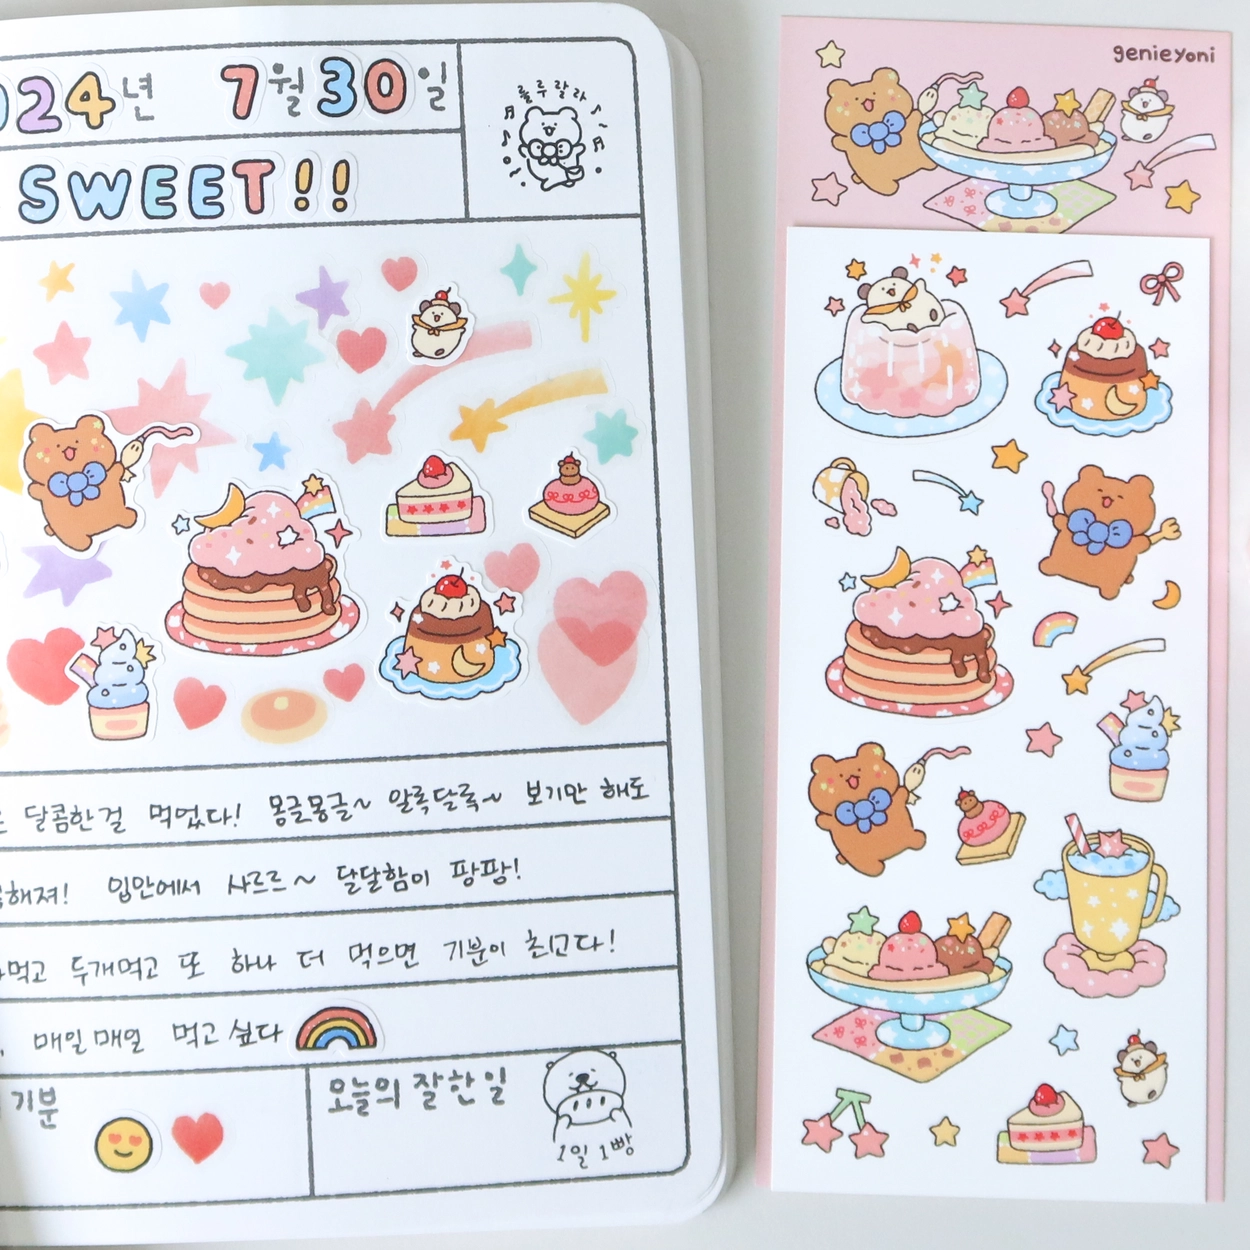 024년 7월 30일
SWEET!!
룰루랄라
달콤한걸 먹었다! 몽글몽글~ 알록달록~ 보기만 해도
해져! 입안에서 사르르~ 달달함이 팡팡!
먹고 두개먹고 또 하나 더 먹으면 기분이 최고다!
매일매일 먹고싶다
기분
오늘의 잘한일
1일 1빵
genieyoni